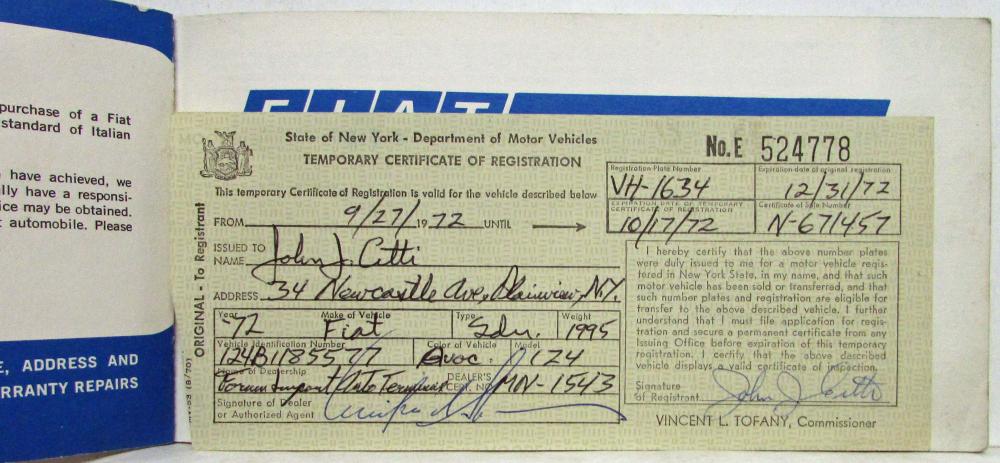 purchase of a Fiat
standard of Italian
have achieved, we
lly have a responsi-
ice may be obtained.
automobile. Please
E, ADDRESS AND
RRANTY REPAIRS
FIAT
State of New York - Department of Motor Vehicles
TEMPORARY CERTIFICATE OF REGISTRATION
No. E 524778
This temporary Certificate of Registration is valid for the vehicle described below
FROM 9/27/1972 UNTIL
ISSUED TO
NAME John J. Citti
ADDRESS 34 Newcastle Ave, Plainview, N.Y.
Year Make of Vehicle Type Weight
'72 Fiat Sdn. 1995
Vehicle Identification Number Color of Vehicle Model
124B1185577 Avoc. 124
Name of Dealership
Forum Import Auto Terminal DEALER'S CERT. NO. MN-1543
Signature of Dealer
or Authorized Agent
ORIGINAL - To Registrant
(8/70)
Registration Plate Number Expiration date of original registration
VH-1634 12/31/72
EXPIRATION DATE OF TEMPORARY Certificate of Sale Number
CERTIFICATE OF REGISTRATION
10/17/72 N-671457
I hereby certify that the above number plates
were duly issued to me for a motor vehicle regis-
tered in New York State, in my name, and that such
motor vehicle has been sold or transferred, and that
such number plates and registration are eligible for
transfer to the above described vehicle. I further
understand that I must file application for regis-
tration and secure a permanent certificate from any
Issuing Office before expiration of this temporary
registration. I certify that the above described
vehicle displays a valid certificate of inspection.
Signature
of Registrant John J. Citti
VINCENT L. TOFANY, Commissioner